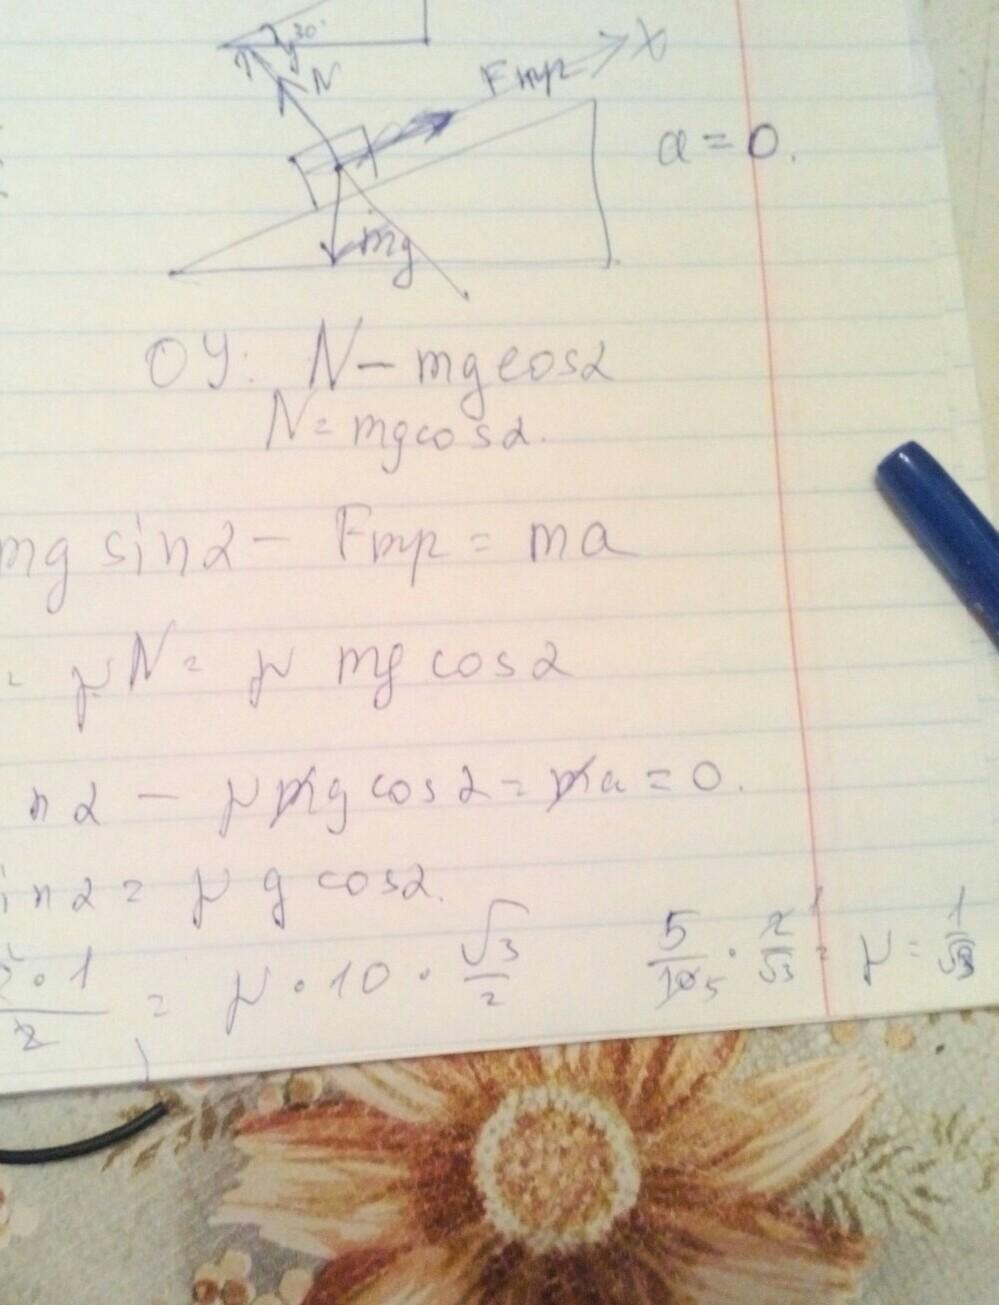 30°
y
N
Fтр X
a = 0.
mg
OY: N - mg cosα
N = mg cosα.
mg sinα - Fтр = ma
= μN = μ mg cosα
nα - μmg cosα = ma = 0.
inα = μ g cosα.
· 1 / 2 = μ · 10 · √3/2 5/10 5 · 2/√3 1 = μ = 1/√3